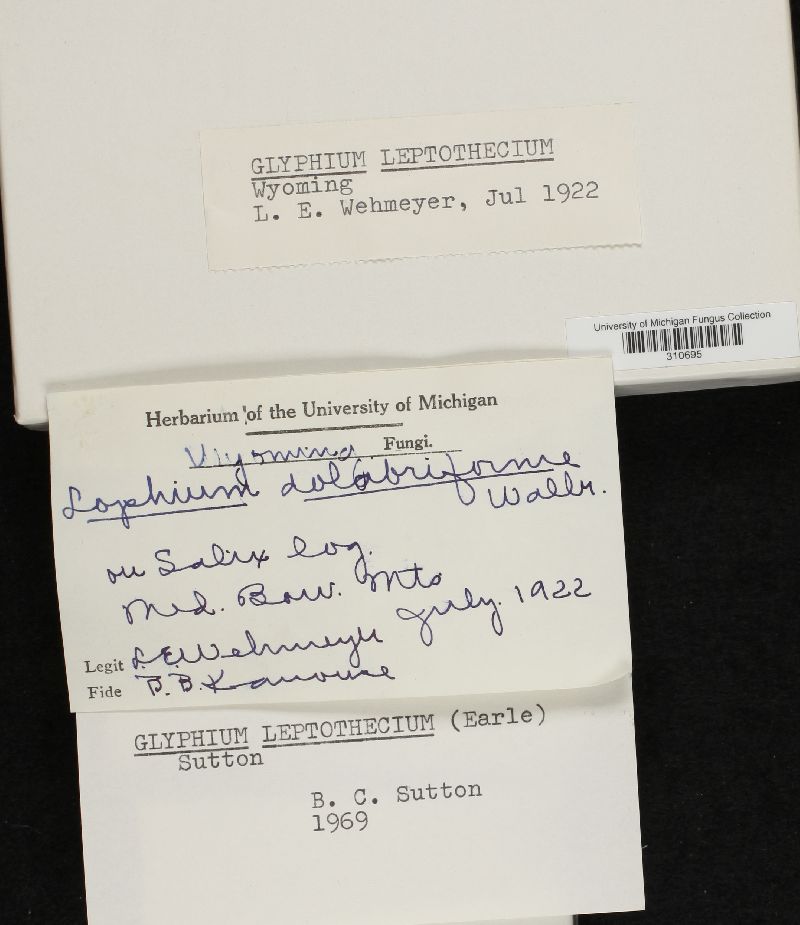 GLYPHIUM LEPTOTHECIUM
Wyoming
L. E. Wehmeyer, Jul 1922
University of Michigan Fungus Collection
310695
Herbarium of the University of Michigan
Wyoming Fungi.
Lophium dolabriforme
Wallr.
on Salix log.
Med. Bow. Mts
Legit L.E.Wehmeyer July. 1922
Fide B.B.Kanouse
GLYPHIUM LEPTOTHECIUM (Earle)
Sutton
B. C. Sutton
1969